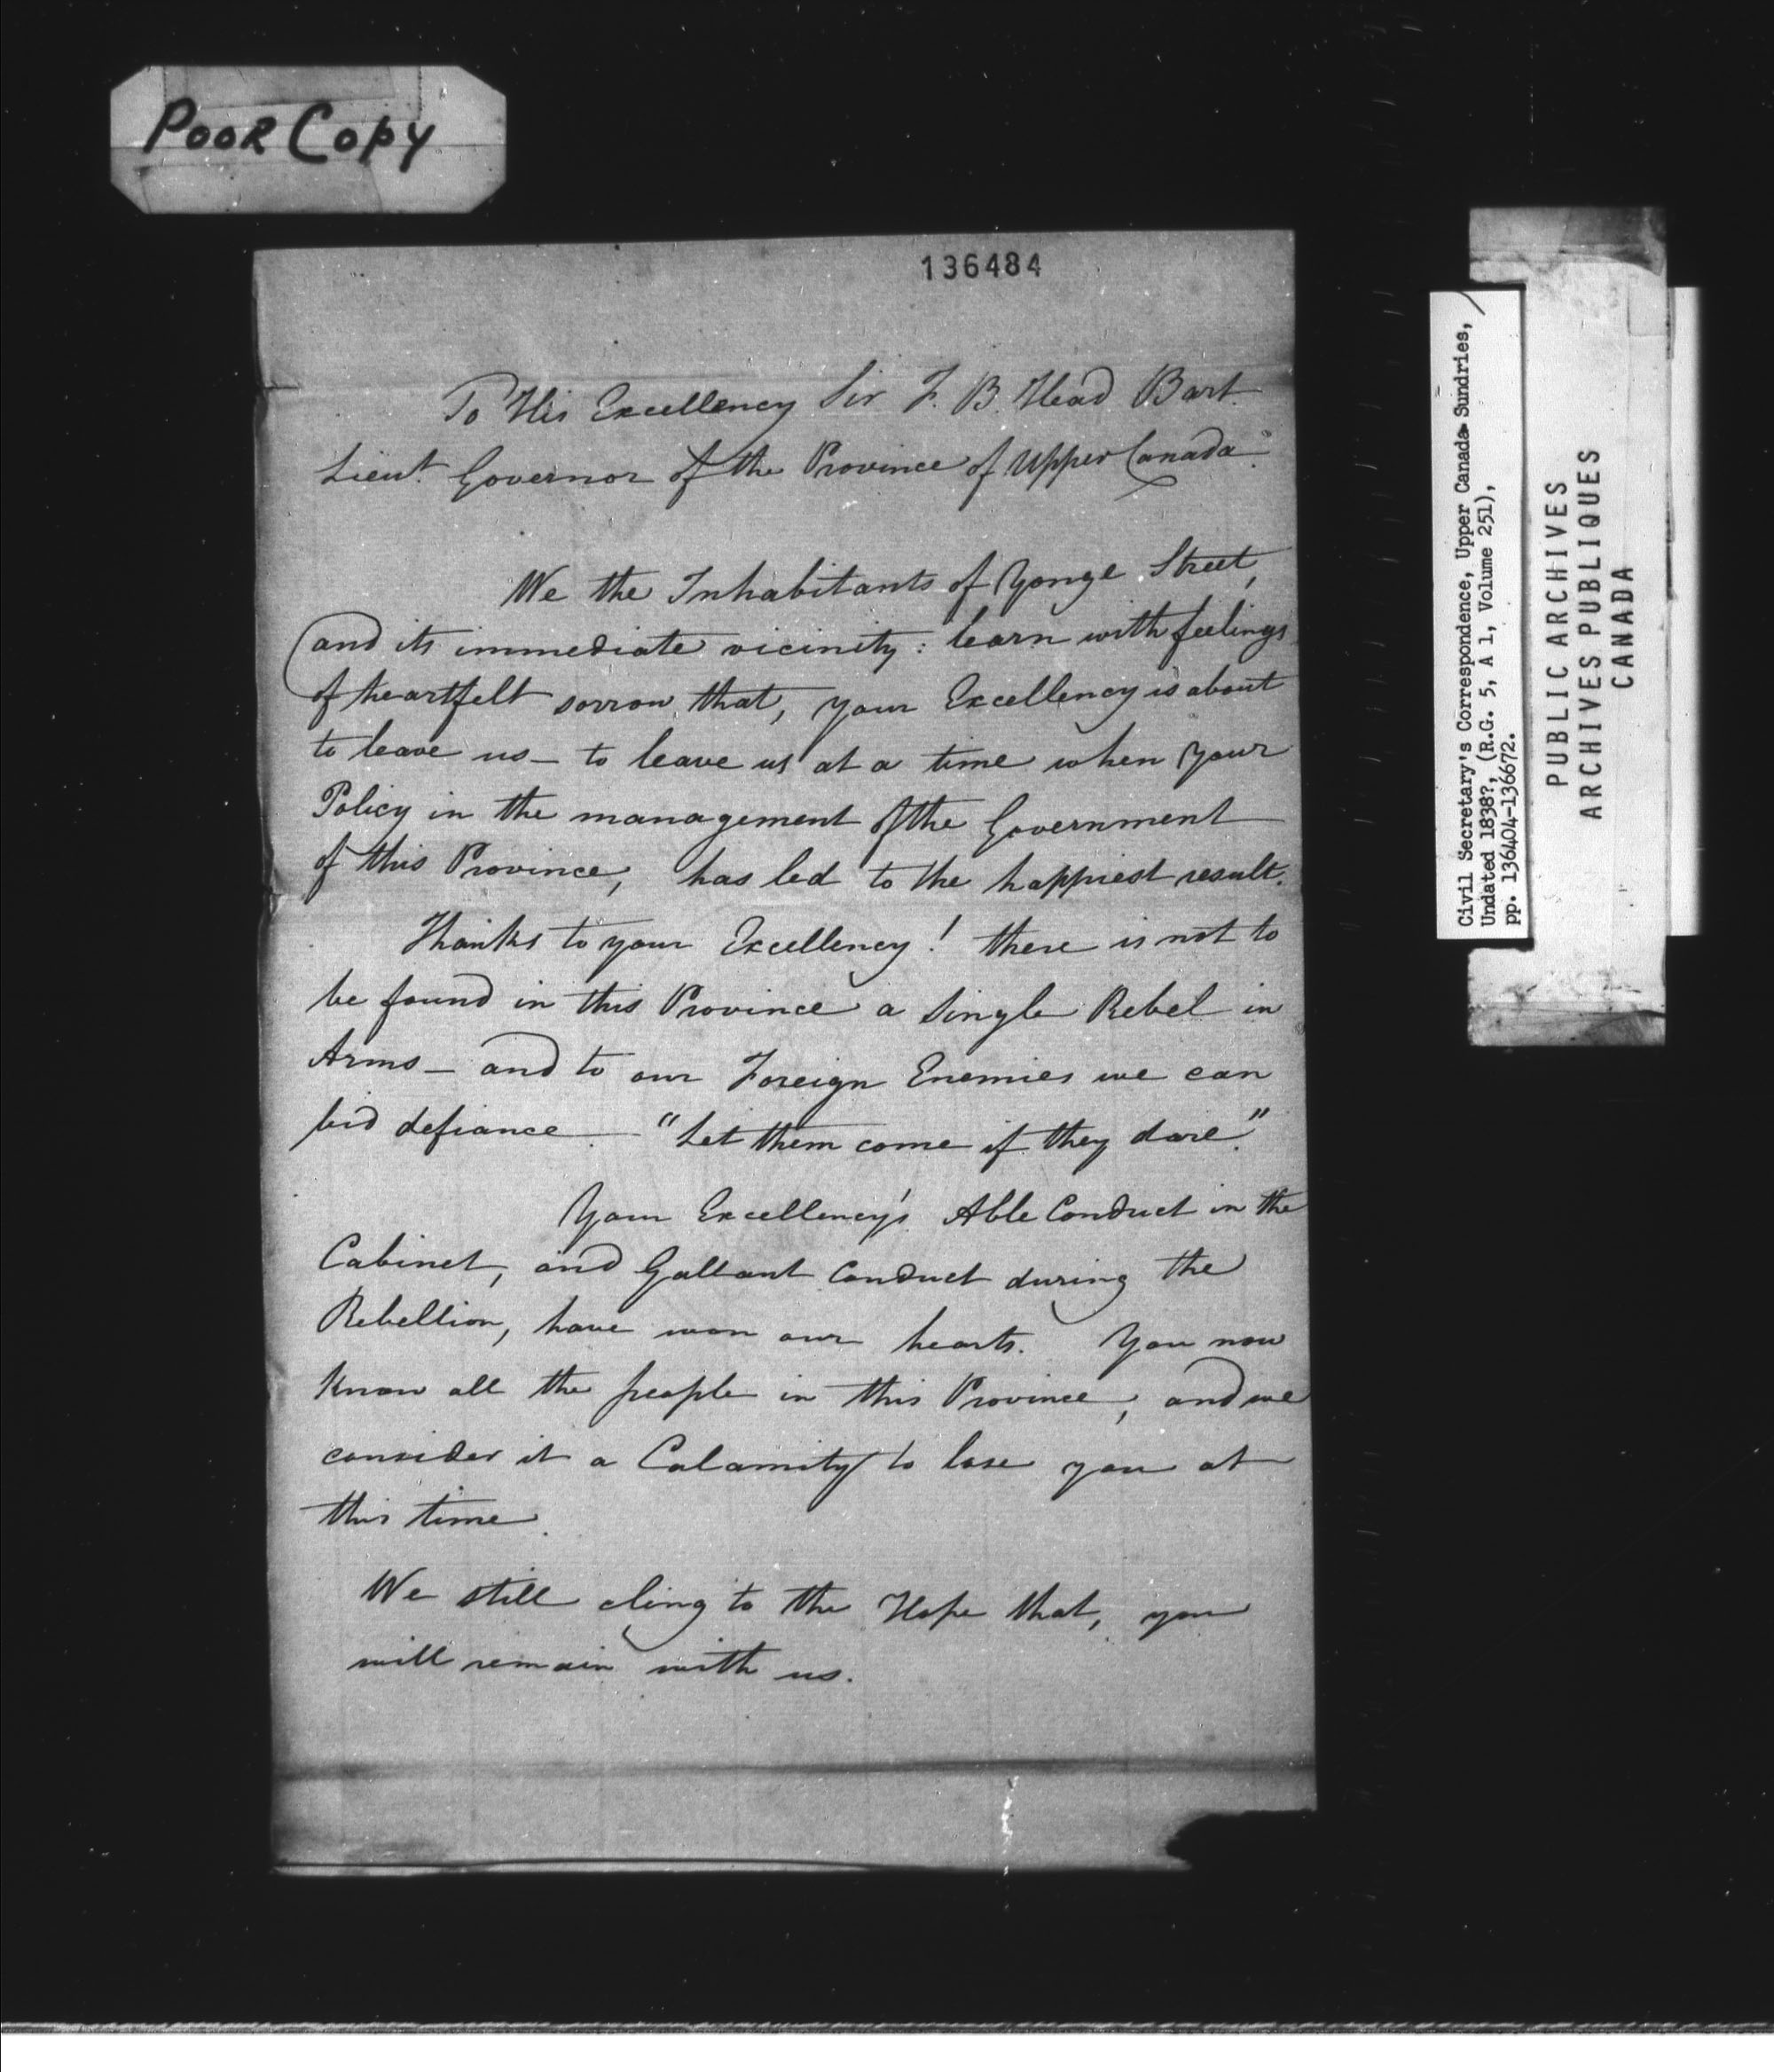 Poor Copy
136484
To His Excellency Sir F. B. Head Bart.
Lieut. Governor of the Province of Upper Canada.
We the Inhabitants of Yonge Street,
and its immediate vicinity: learn with feelings
of heartfelt sorrow that, your Excellency is about
to leave us - to leave us at a time when your
Policy in the management of the Government
of this Province, has led to the happiest result.
Thanks to your Excellency! there is not to
be found in this Province a single Rebel in
Arms - and to our Foreign Enemies we can
bid defiance. - "Let them come if they dare."
Your Excellency's Able Conduct in the
Cabinet, and Gallant Conduct during the
Rebellion, have won our hearts. You now
know all the people in this Province, and we
consider it a Calamity to lose you at
this time.
We still cling to the Hope that, you
will remain with us.
Civil Secretary's Correspondence, Upper Canada Sundries,
Undated 1838?, (R.G. 5, A 1, Volume 251),
pp. 136404-136672.
PUBLIC ARCHIVES
ARCHIVES PUBLIQUES
CANADA